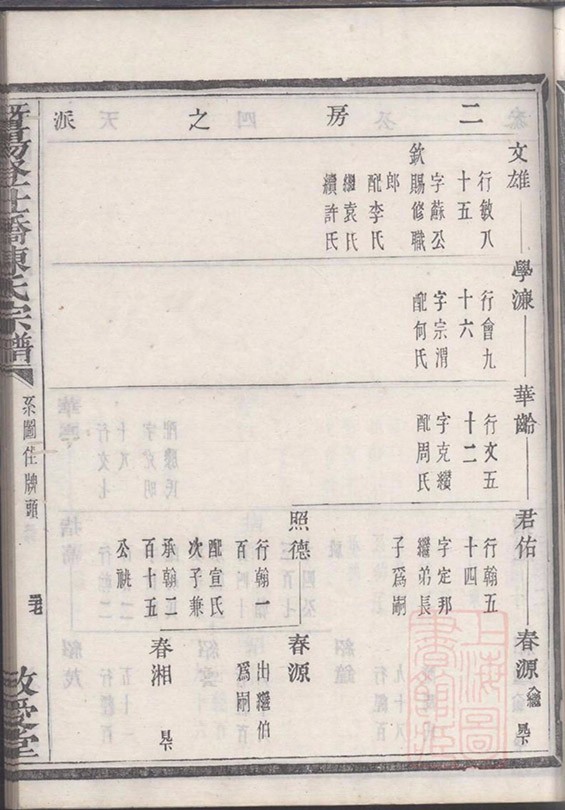 二房之派
文雄
行敏八
十五
字蘇公
欽賜修職
郎
配李氏
繼袁氏
續許氏
學濂
行會九
十六
字宗渭
配何氏
華齡
行文五
十二
字克纘
配周氏
君佑
行翰五
十四
字定邦
繼弟長
子爲嗣
春源 入繼
照德
行翰一
百
配宣氏
次子兼
承翰二
百十五
公祧
春源
出繼伯
爲嗣
春湘
橋陳氏宗譜
系圖仕牌頭
敬愛堂
上海圖書館藏